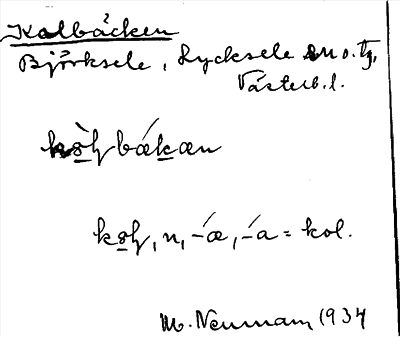 Kolbäcken
Björksele, Lycksele sn o. tg,
Västerb. l.
kòļbákæn
koļ, n, -æ, -a = kol.
M. Neuman 1934